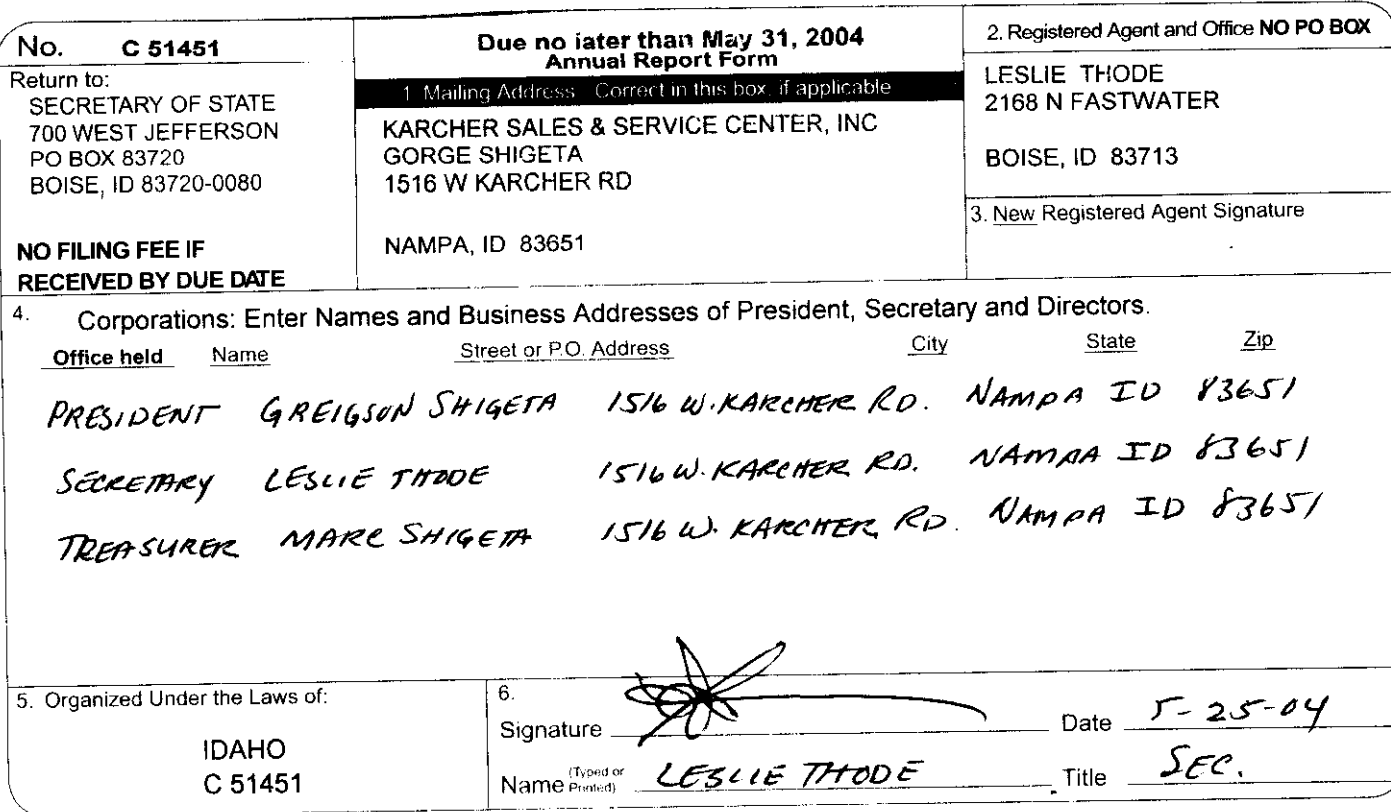 No. C 51451
Return to:
SECRETARY OF STATE
700 WEST JEFFERSON
PO BOX 83720
BOISE, ID 83720-0080
NO FILING FEE IF
RECEIVED BY DUE DATE
Due no later than May 31, 2004
Annual Report Form
1 Mailing Address Correct in this box, if applicable
KARCHER SALES & SERVICE CENTER, INC
GORGE SHIGETA
1516 W KARCHER RD
NAMPA, ID 83651
2. Registered Agent and Office NO PO BOX
LESLIE THODE
2168 N FASTWATER
BOISE, ID 83713
3. New Registered Agent Signature
4. Corporations: Enter Names and Business Addresses of President, Secretary and Directors.
Office held Name Street or P.O. Address City State Zip
PRESIDENT GREIGSON SHIGETA 1516 W. KARCHER RD. NAMPA ID 83651
SECRETARY LESLIE THODE 1516 W. KARCHER RD. NAMPA ID 83651
TREASURER MARC SHIGETA 1516 W. KARCHER RD. NAMPA ID 83651
5. Organized Under the Laws of:
IDAHO
C 51451
6.
Signature Date 5-25-04
Name (Typed or Printed) LESLIE THODE Title SEC.